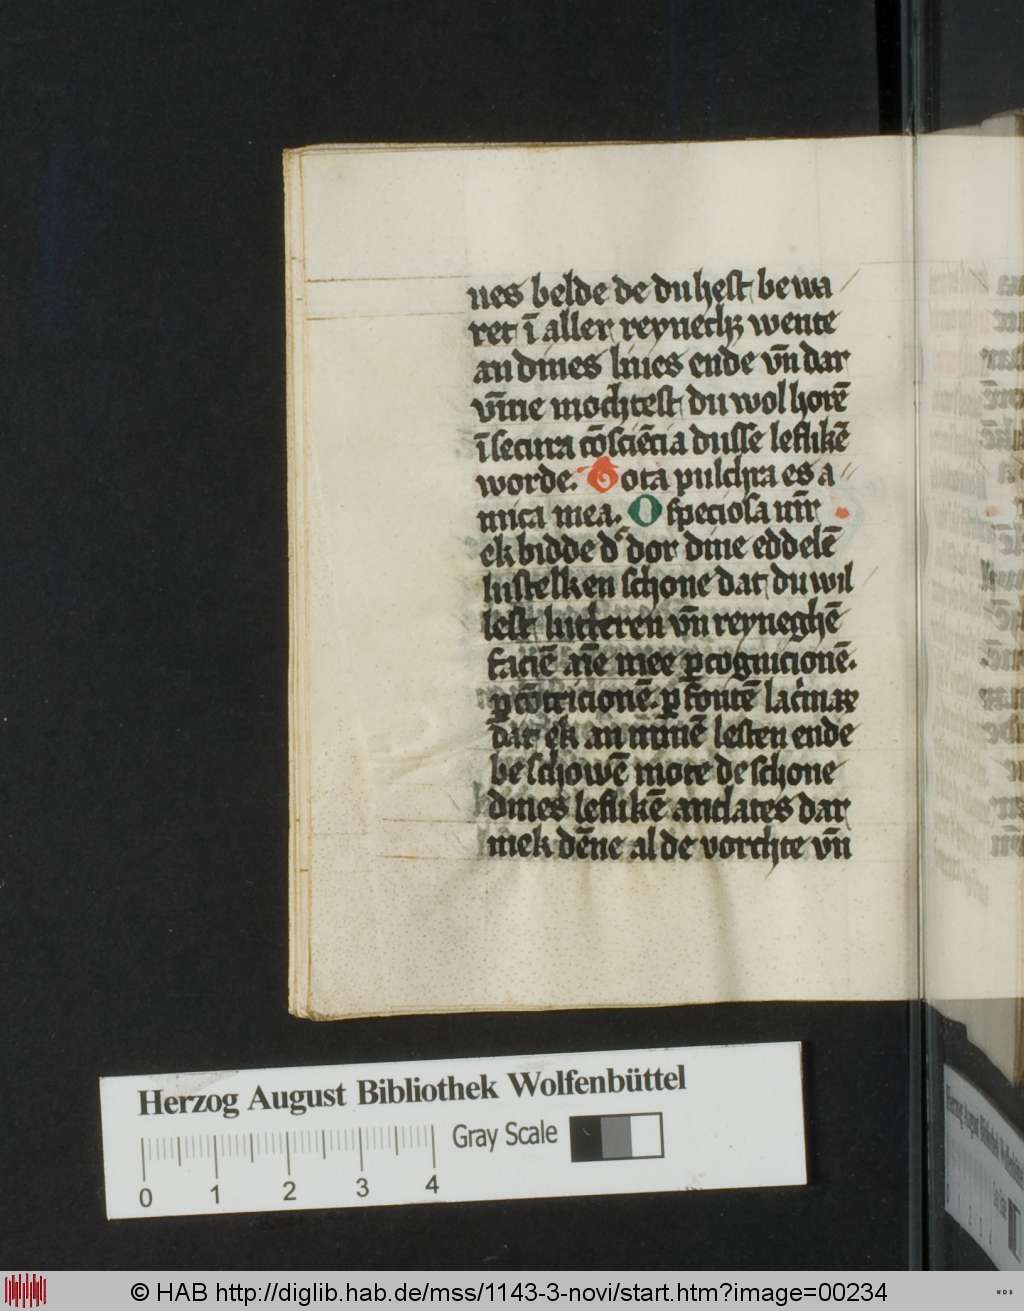 ues belde de du hest bewa
ret ī aller reynecheyt wente
an dines liues ende vn̄ dar
vm̄me mochtest du wol horē
ī secura cōsciēcia dusse leflikē
worde. Tota pulchra es a
mica mea. O speciosa
ek bidde dͨ dor dine eddelē
lustelken schone dat du wil
lest lutteren vn̄ reyneghē
faciē aīe mee ꝑ cognicionē.
ꝑ cōtricionē. ꝑ fontē lac̄maꝝ
dat ek an minē lesten ende
beschowē mote de schone
dines leflikē antlates dar
mek dēne al de vorchte vn̄
Herzog August Bibliothek Wolfenbüttel
Gray Scale
0 1 2 3 4
© HAB http://diglib.hab.de/mss/1143-3-novi/start.htm?image=00234